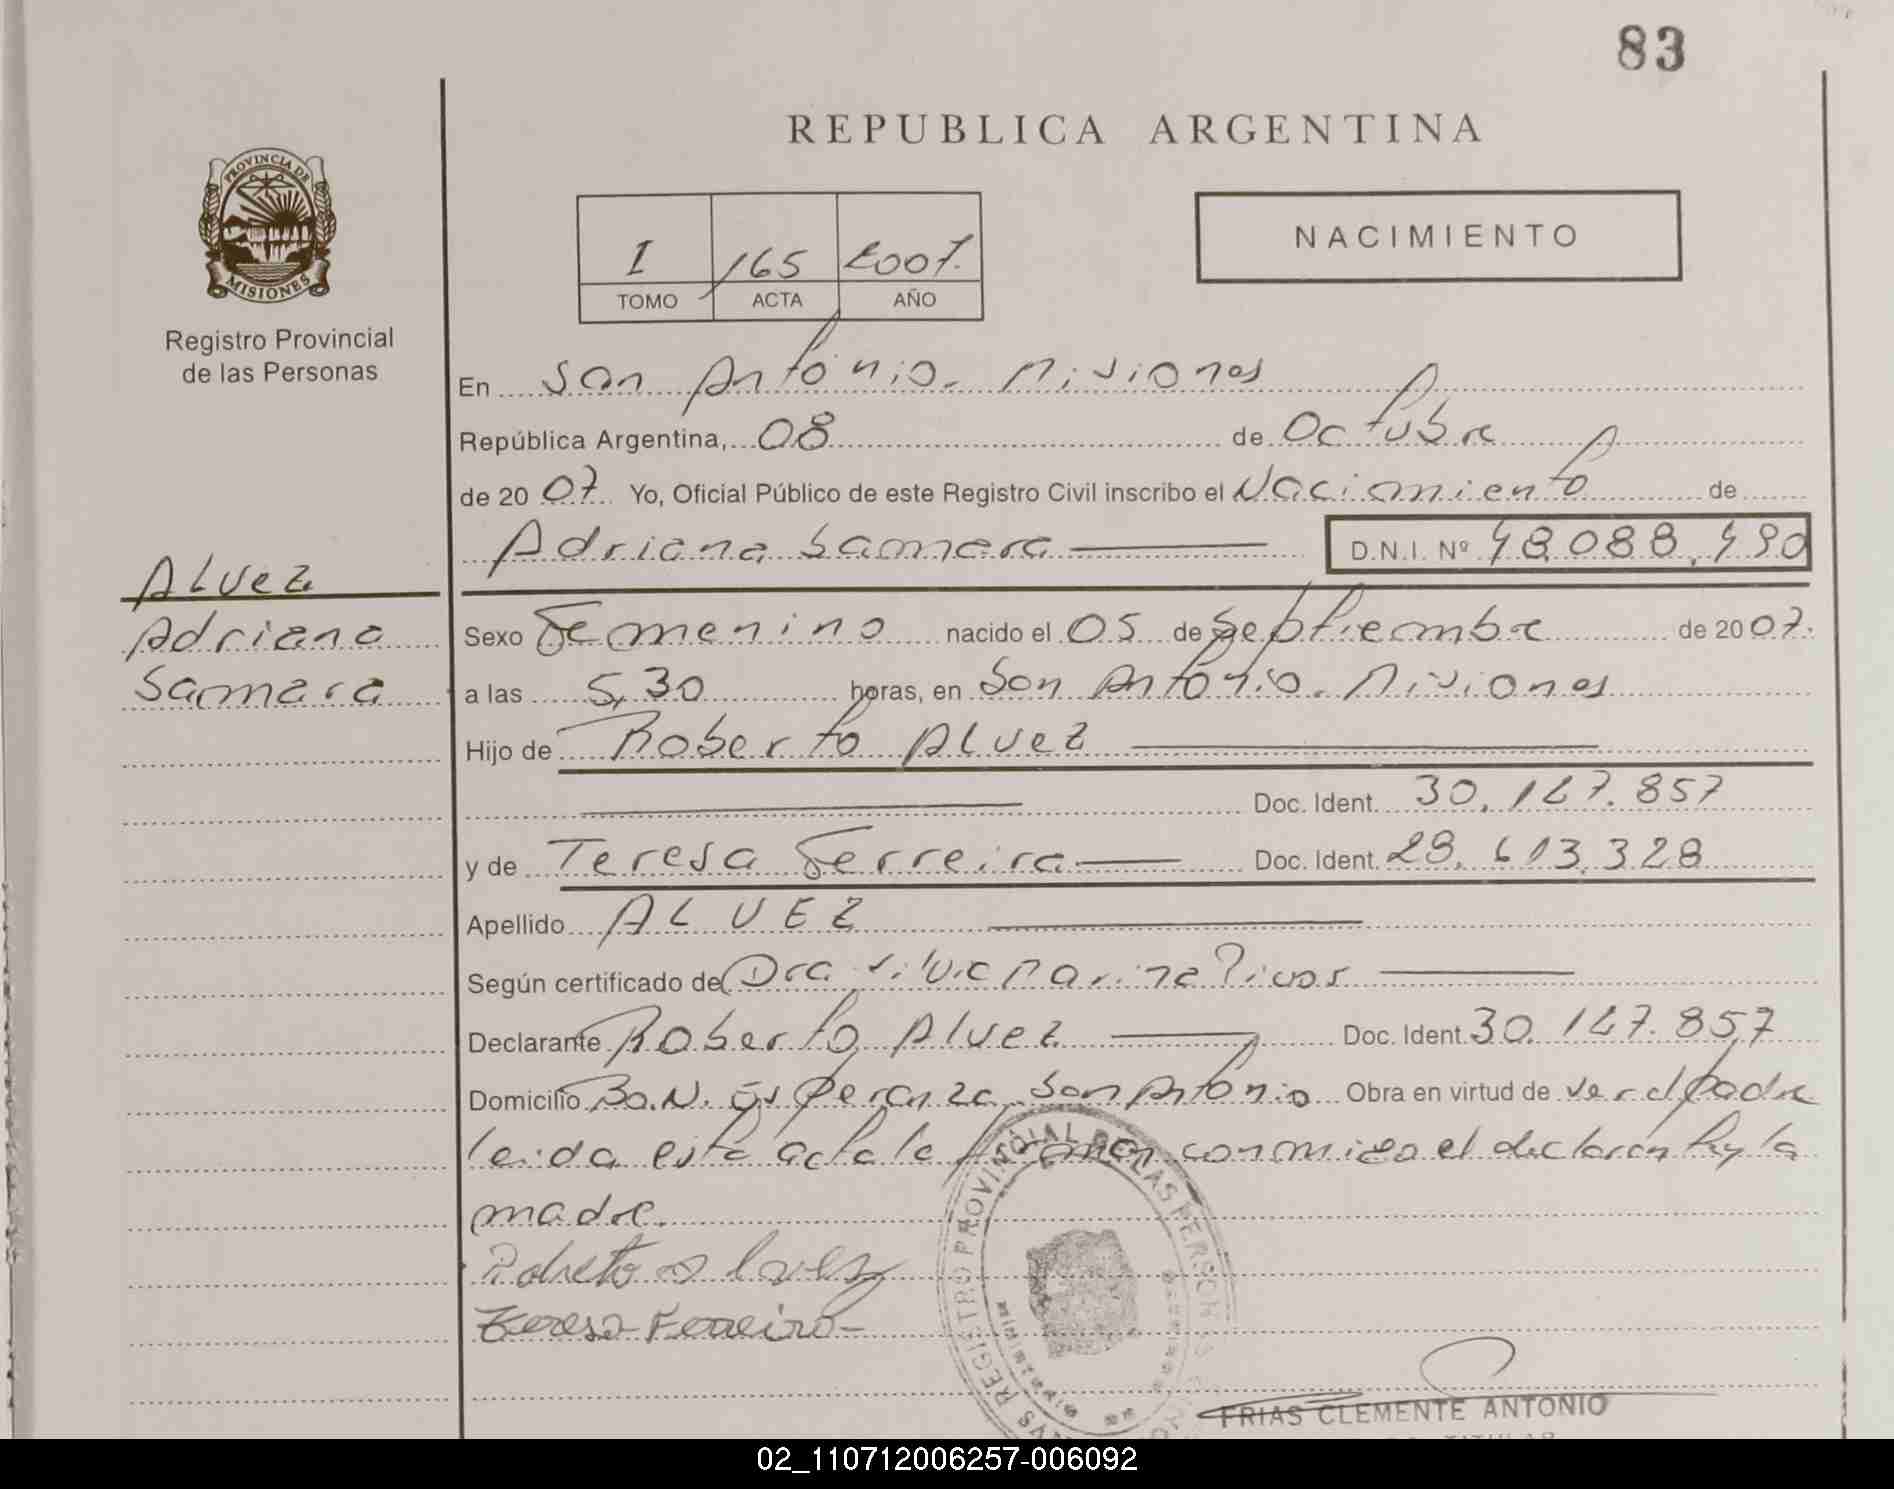 83
REPUBLICA ARGENTINA
PROVINCIA DE
MISIONES
Registro Provincial
de las Personas
I 165 2007.
TOMO ACTA AÑO
NACIMIENTO
En San Antonio. Misiones
República Argentina, 08 de Octubre
de 20 07. Yo, Oficial Público de este Registro Civil inscribo el Nacimiento de
Adriana Samara D.N.I. Nº 48.088.490
Alvez
Adriana
Samara
Sexo Femenino nacido el 05 de Septiembre de 20 07.
a las 5,30 horas, en San Antonio. Misiones
Hijo de Roberto Alvez
Doc. Ident. 30.147.857
y de Teresa Ferreira Doc. Ident. 28.613.328
Apellido ALVEZ
Según certificado de Dra. Silvia Marina Rivas
Declarante Roberto Alvez Doc. Ident. 30.147.857
Domicilio Bo.N. Esperanza San Antonio Obra en virtud de ser el padre
leida esta acta la firman conmigo el declarante y la
madre.
Teresa Ferreira
REGISTRO PROVINCIAL DE LAS PERSONAS
FRIAS CLEMENTE ANTONIO
02_110712006257-006092